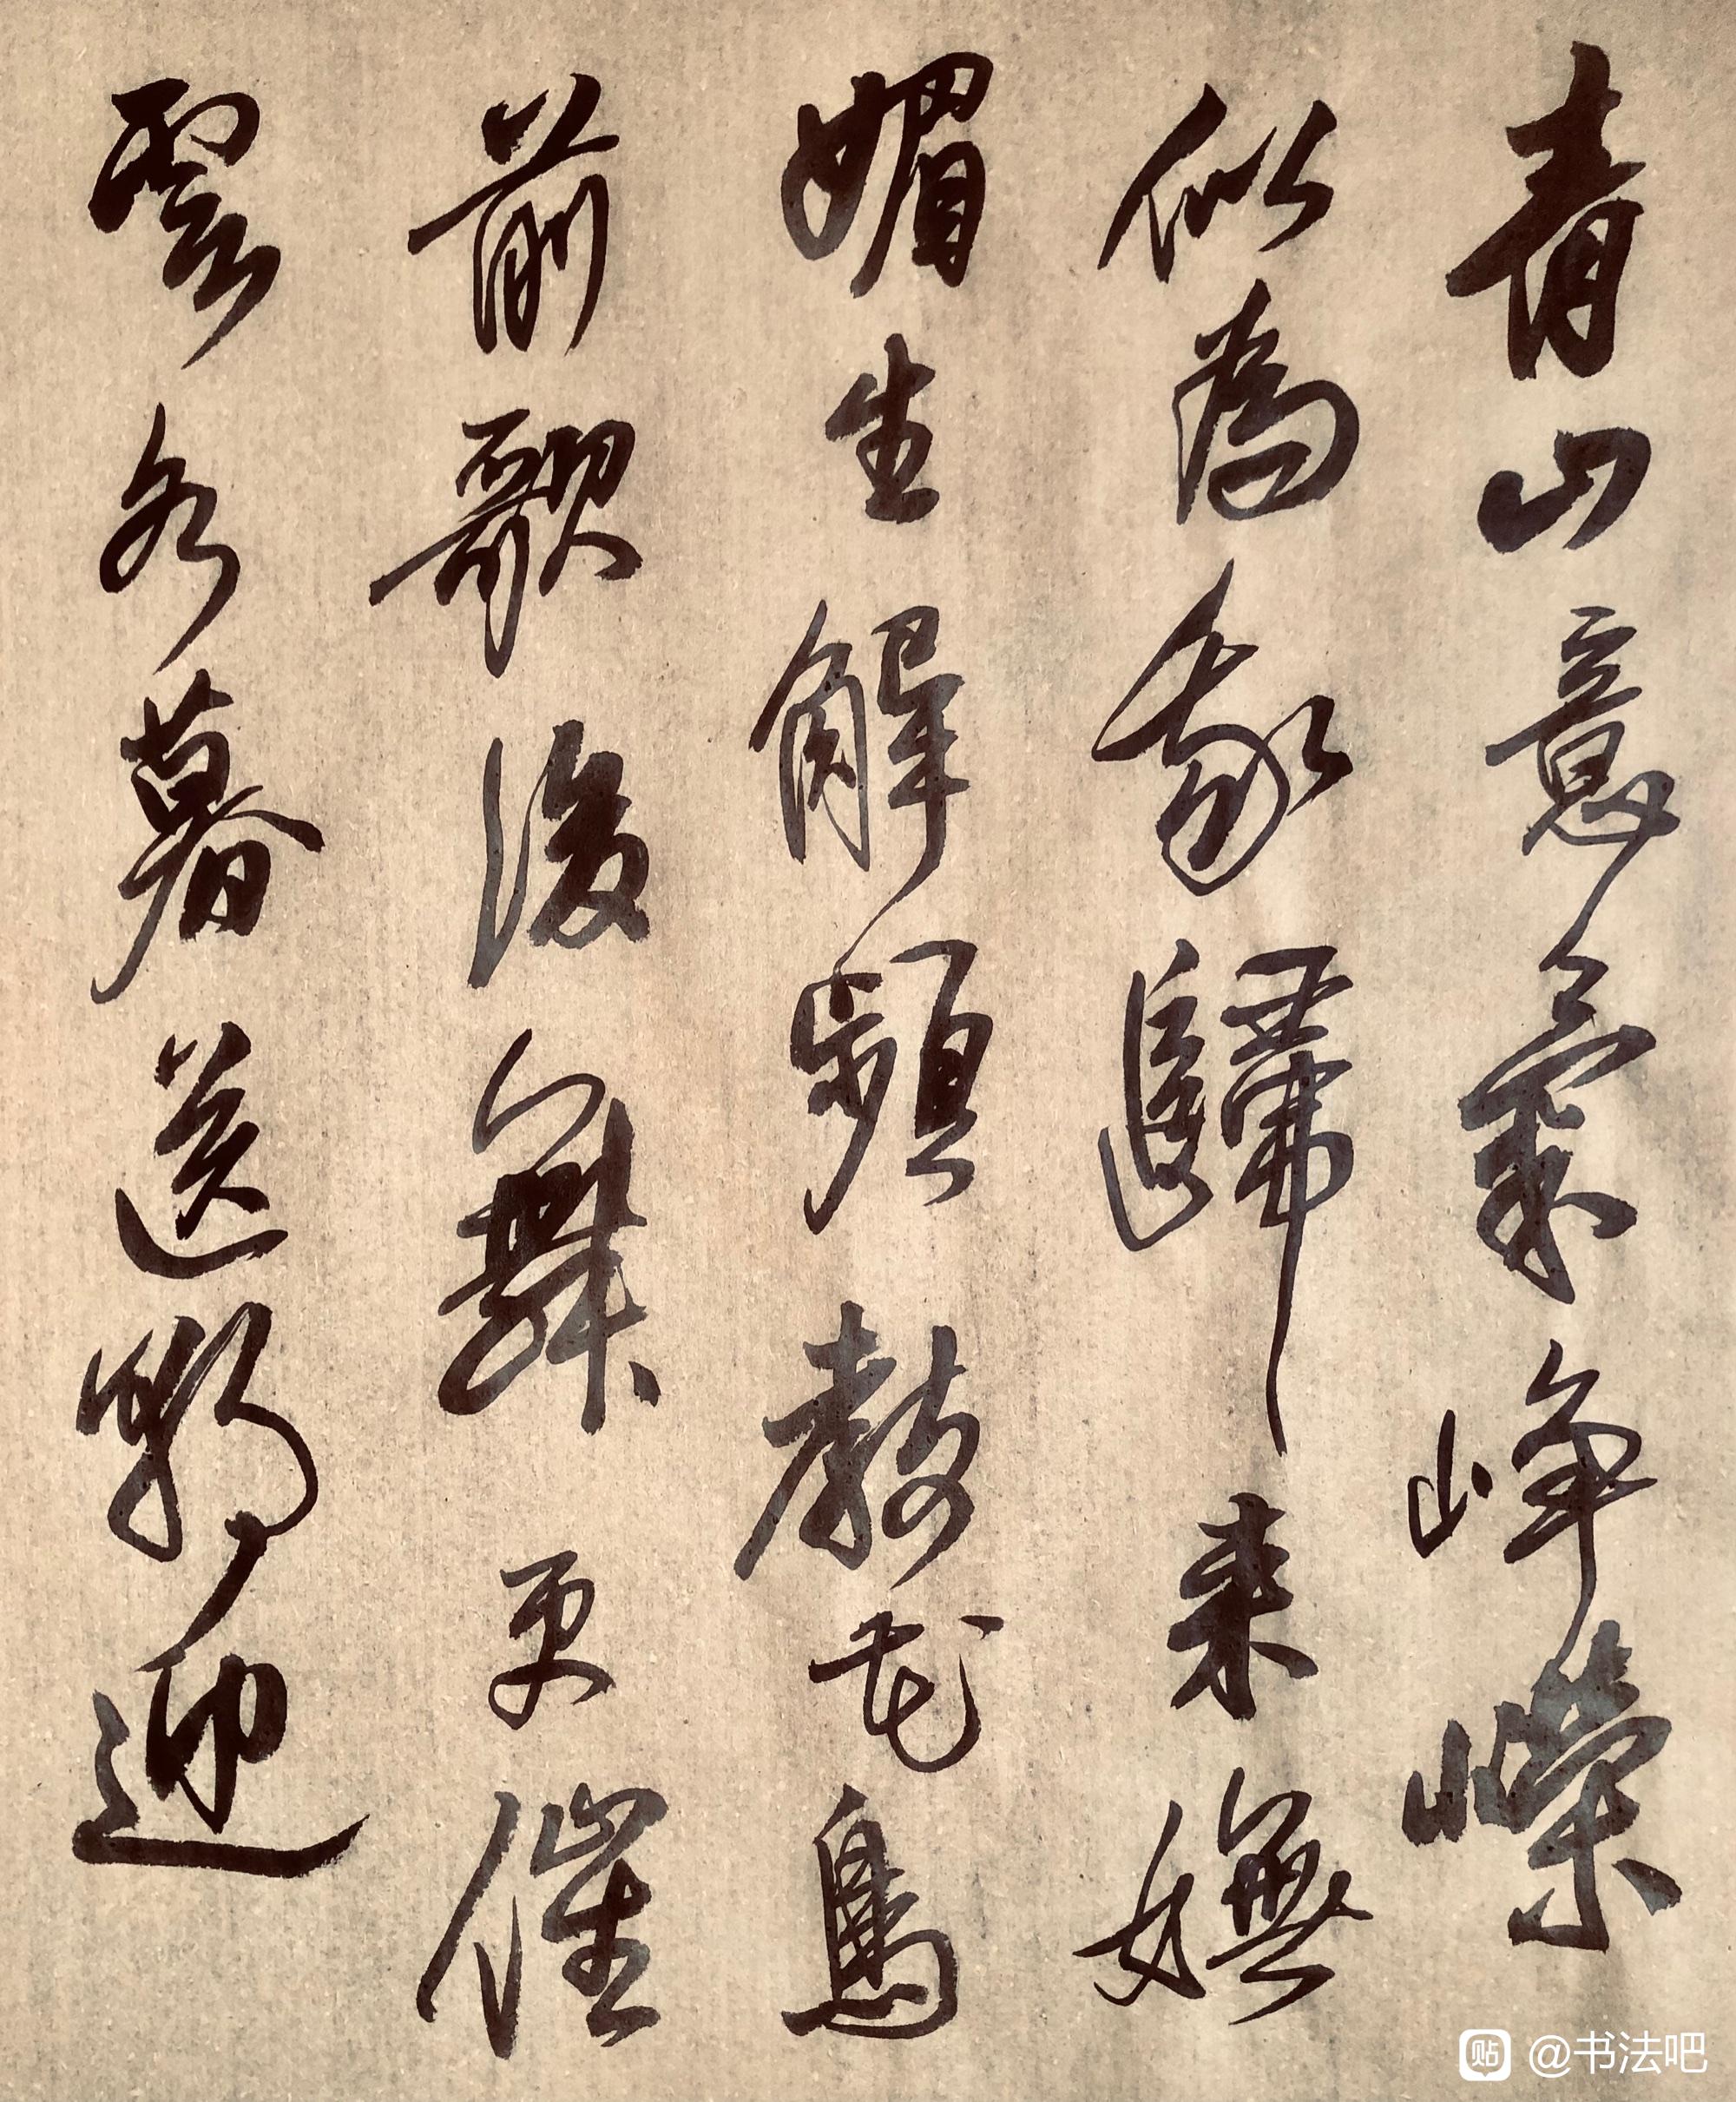 青山意氣峥嶸
似為我歸来嫵
媚生解頻教花鳥
前歌後舞更催
雲水暮送朝迎
@书法吧